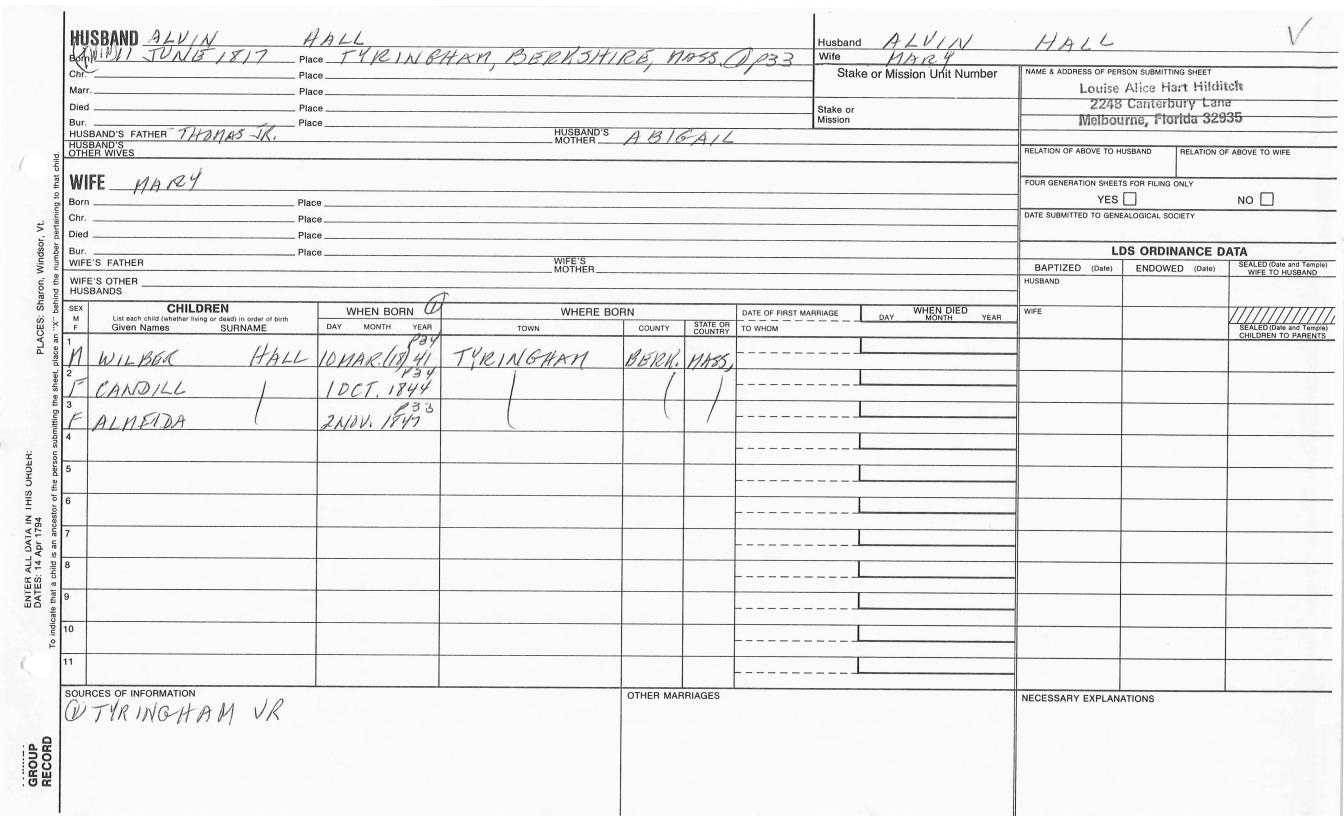 HUSBAND ALVIN HALL
Born (TWIN) 11 JUNE 1817 Place TYRINGHAM, BERKSHIRE, MASS. ① p33
Chr. Place
Marr. Place
Died Place
Bur. Place
HUSBAND'S FATHER THOMAS JR. HUSBAND'S MOTHER ABIGAIL
HUSBAND'S OTHER WIVES
Husband ALVIN HALL
Wife MARY
Stake or Mission Unit Number
Stake or Mission
NAME & ADDRESS OF PERSON SUBMITTING SHEET
Louise Alice Hart Hilditch
2248 Canterbury Lane
Melbourne, Florida 32935
RELATION OF ABOVE TO HUSBAND RELATION OF ABOVE TO WIFE
FOUR GENERATION SHEETS FOR FILING ONLY
YES NO
DATE SUBMITTED TO GENEALOGICAL SOCIETY
WIFE MARY
Born Place
Chr. Place
Died Place
Bur. Place
WIFE'S FATHER WIFE'S MOTHER
WIFE'S OTHER HUSBANDS
LDS ORDINANCE DATA
BAPTIZED (Date) ENDOWED (Date) SEALED (Date and Temple) WIFE TO HUSBAND
HUSBAND
WIFE
SEALED (Date and Temple) CHILDREN TO PARENTS
SEX M F
CHILDREN
List each child (whether living or dead) in order of birth
Given Names SURNAME
WHEN BORN ①
DAY MONTH YEAR
WHERE BORN
TOWN COUNTY STATE OR COUNTRY
DATE OF FIRST MARRIAGE
TO WHOM
WHEN DIED
DAY MONTH YEAR
1 M WILBER HALL 10 MAR. (18)41 p34 TYRINGHAM BERK. MASS.
2 F CANDILL 1 OCT. 1844 p34
3 F ALMEIDA 2 NOV. 1847 p33
4
5
6
7
8
9
10
11
SOURCES OF INFORMATION
① TYRINGHAM VR
OTHER MARRIAGES
NECESSARY EXPLANATIONS
PLACES: Sharon, Windsor, Vt.
ENTER ALL DATA IN THIS ORDER:
DATES: 14 Apr 1794
To indicate that a child is an ancestor of the person submitting the sheet, place an "X" behind the number pertaining to that child
GROUP
RECORD